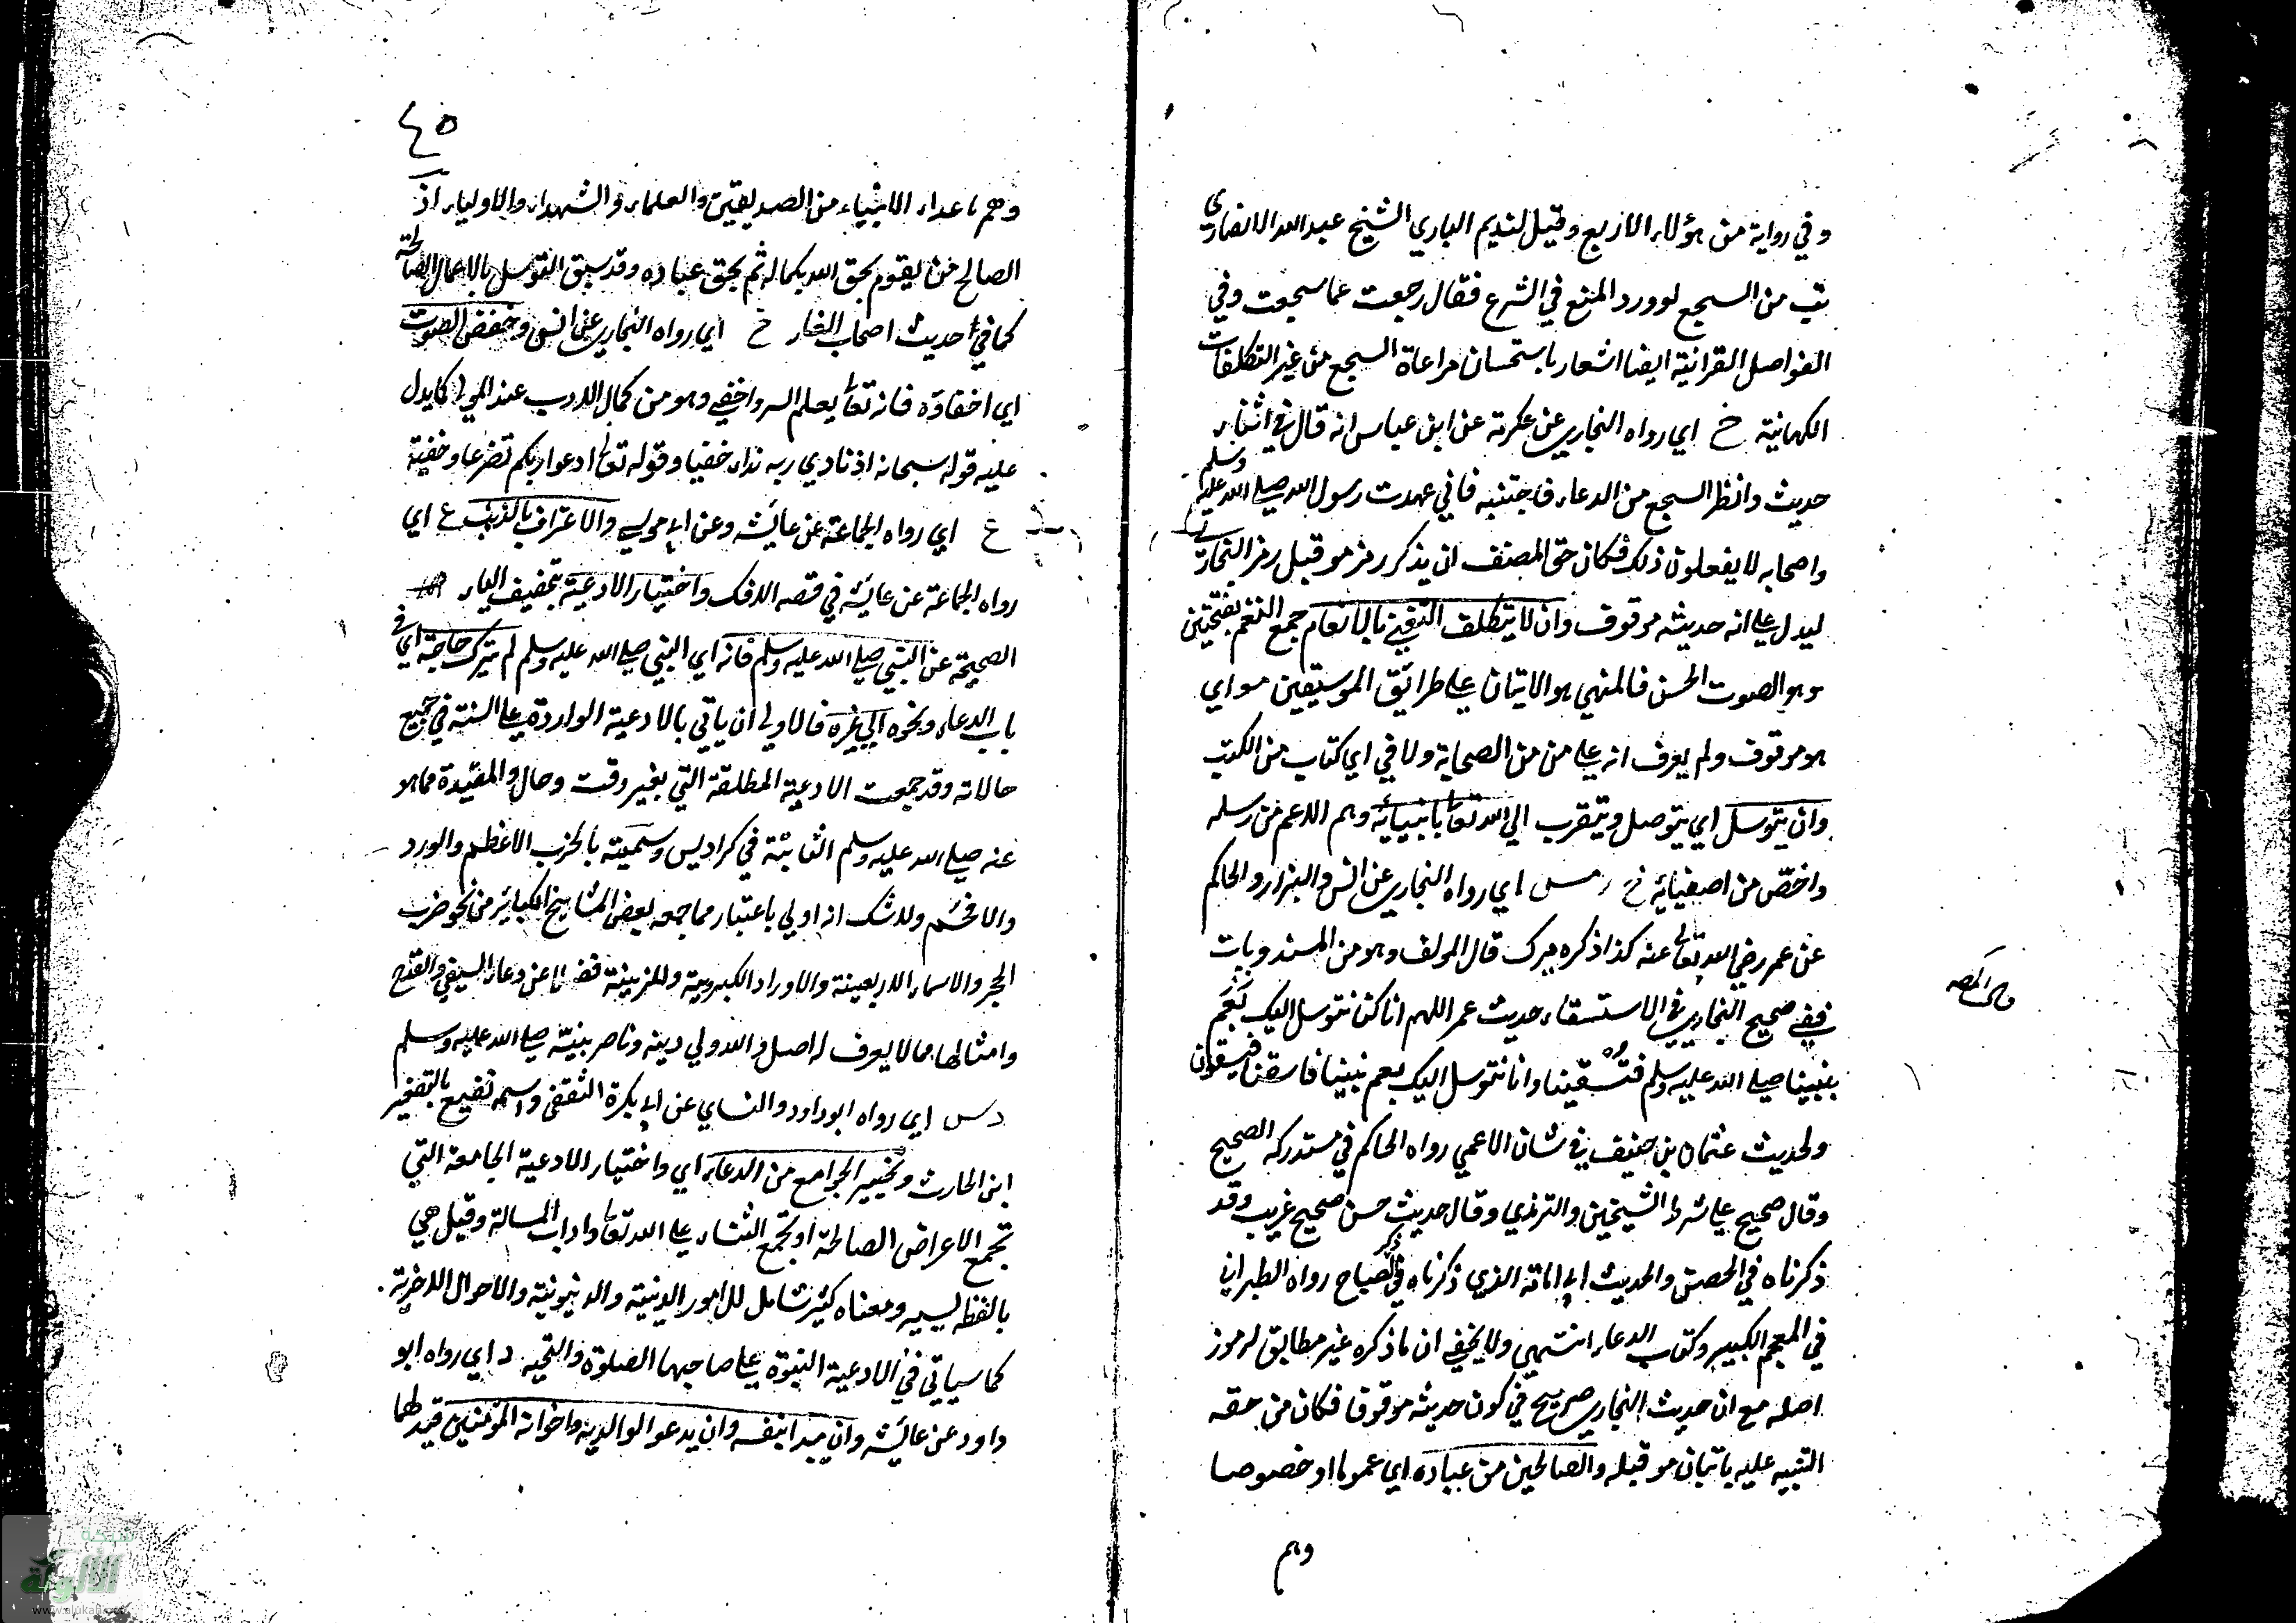 وفي رواية من هؤلاء الاربع وقيل لنديم الباري الشيخ عبد الله الانصاري
تب من السجع لوورد المنع في الشرع فقال رجعت عما سجعت وفي
الفواصل القرانية ايضا اشعار باستحسان مراعاة السجع من غير التكلفات
الكهانية خ اي رواه البخاري عن عكرمة عن ابن عباس انه قال في اثناء
حديث وانظر السجع من الدعاء فاجتنبه فاني عهدت رسول الله صلى الله عليه وسلم
واصحابه لا يفعلون ذلك فكان حق المصنف ان يذكر رمز مو قبل رمز البخاري
ليدل على انه حديثه موقوف وان لا يتكلف التغني بالانغام جمع النغم بفتحتين
وهو الصوت الحسن فالمنهي هو الاتيان على طرائق الموسيقيين مو اي
هو موقوف ولم يعرف انه على من من الصحابة ولا في اي كتاب من الكتب
وان يتوسل اي يتوصل ويتقرب الى الله تعالى بانبيائه وهم الاعم من رسله
واخص من اصفيائه خ ر مس اي رواه البخاري عن انس والبزار والحاكم
عن عمر رضي الله تعالى عنه كذا ذكره ميرك قال المولف وهو من المندوبات
ففي صحيح البخاري في الاستسقاء حديث عمر اللهم انا كنا نتوسل اليك
بنبينا صلى الله عليه وسلم فتسقينا وانا نتوسل اليك بعم نبينا فاسقنا فيسقون
ولحديث عثمان بن حنيف في شان الاعمى رواه الحاكم في مستدركه الصحيح
وقال صحيح على شرط الشيخين والترمذي وقال حديث حسن صحيح غريب وقد
ذكرناه في الحصن والحديث ابي امامة الذي ذكرناه في ذكر الصباح رواه الطبراني
في المعجم الكبير وكتاب الدعاء انتهى ولا يخفى ان ما ذكره غير مطابق لرموز
اصله مع ان حديث البخاري صريح في كون حديثه موقوفا فكان من حقه
التنبيه عليه باتيان مو قبله والصالحين من عباده اي عموما او خصوصا
وهم
٤٥
وهم ما عداء الانبياء من الصديقين والعلماء والشهداء والاولياء اذ
الصالح من يقوم بحق الله بكماله ثم بحق عباده وقد سبق التوسل بالاعمال الصالحة
كما في حديث اصحاب الغار خ اي رواه البخاري عن انس وخفض الصوت
اي اخفاؤه فانه تعالى يعلم السر واخفى وهو من كمال الادب عند المولى كما يدل
عليه قوله سبحانه اذ نادى ربه نداء خفيا وقوله تعالى ادعوا ربكم تضرعا وخفية
ع اي رواه الجماعة عن عائشه وعن ابي موسى والاعتراف بالذنب ع اي
رواه الجماعة عن عائشه في قصه الافك واختيار الادعية بتخفيف الياء
الصحيحة عن النبي صلى الله عليه وسلم فانه اي النبي صلى الله عليه وسلم لم يترك حاجة اي في
باب الدعاء ونحوه الى غيره فالاولى ان ياتي بالادعية الواردة على السنة في جميع
حالاته وقد جمعت الادعية المطلقة التي بغير وقت وحال والمقيدة مما هو
عنه صلى الله عليه وسلم الثابتة في كراديس وسميته بالحزب الاعظم والورد
والافخم ولا شك انه اولى باعتبار مما جمعه بعض المشايخ الكبائر من نحو حزب
البحر والاسماء الاربعينة والاوراد الكبروية والزينية فضلا عن دعاء السيفي والقدح
وامثالها مما لا يعرف له اصل والله ولي دينه وناصر نبيه صلى الله عليه وسلم
د س اي رواه ابو داود والنساي عن ابي بكرة الثقفي واسمه نفيع بالتصغير
ابن الحارث وتخير الجوامع من الدعاء اي واختيار الادعية الجامعة التي
تجمع الاعراض الصالحة او تجمع الثناء على الله تعالى واداب المسالة وقيل هي
بالفظه يسير ومعناه كثير شامل للامور الدينية والدنيوية والاحوال الاخرية
كما سياتي في الادعية النبوة على صاحبها الصلوة والتحيه د اي رواه ابو
داود عن عائشه وان يبدا بنفسه وان يدعو لوالديه واخوانه المؤمنين قيد لهما
شبكة
الألوكة
www.alukah.net